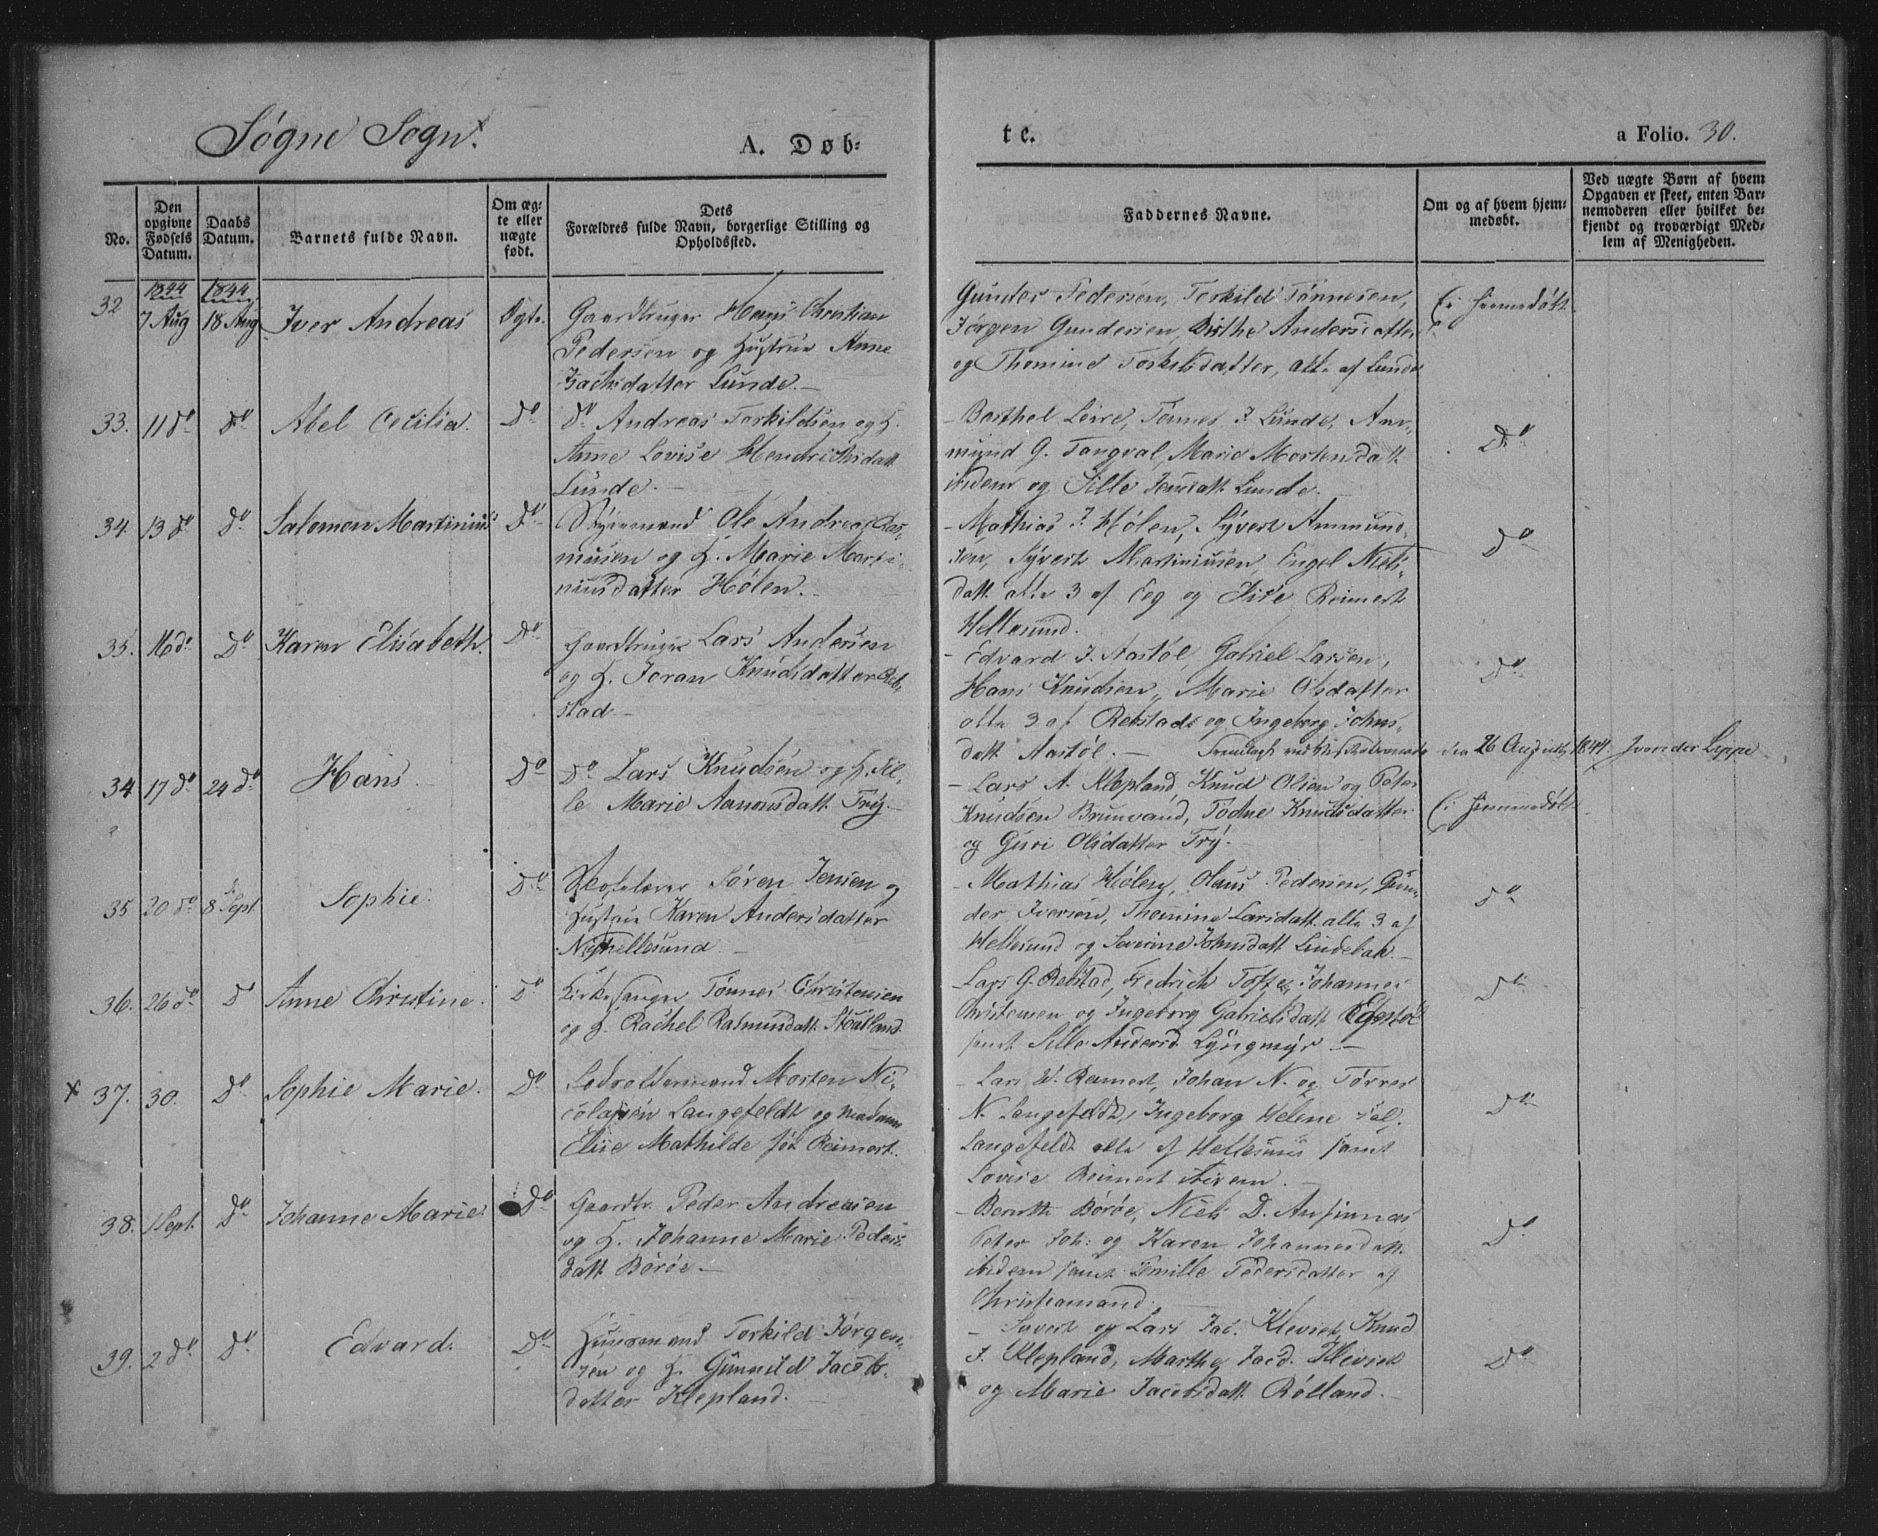 Søgne Sogn.
A. Døb-
te.
a Folio. 30.
No.
Den opgivne Fødsels Datum.
Daabs Datum.
Barnets fulde Navn.
Om ægte eller uægte født.
Dets Forældres fulde Navn, borgerlige Stilling og Opholdssted.
Faddernes Navne.
Om og af hvem hjemmedøbt.
Ved uægte Børn af hvem Opgaven er skeet, enten Barnemoderen eller hvilket bekjendt og troværdigt Medlem af Menigheden.
1844 1844
32 7 Aug 18 Aug Iver Andreas Ægte. Gaardbruger Hans Christian
Pedersen og Hustrue Anne
Isachsdatter Lunde.
Gunder Pedersen, Torkild Tønnesen, Ei hjemmedøbt.
Jørgen Gundersen, Birthe Andersdatter
og Thomine Torkildsdatter, alle af Lunde
33. 11 do do Abel Cecilia. Do do Andreas Torkildsen og H.
Anne Lovise Hendrichsdatt.
Lunde.
Barthel Leire, Tønnes I. Lunde, Am-
mund G. Tangval, Marie Mortensdatt.
ibidem og Sille Jensdatt. Lunde. Do
34. 13 do do Salomon Martinius Do Styrmand Ole Andreas Ras-
musen og H. Marie Marti-
niusdatter Hølen.
Mathias I. Hølen, Syvert Ammund-
sen, Syvert Martiniussen, Engel Niels-
datt. alle 3 af Eeg og Reimert
Hellesund. Do
35. 16 do Do Karen Elisabeth. Do Gaardbruger Lars Andersen
og H. Joran Knudsdatter Reb-
stad
Edvard I. Aastøl, Gabriel Larsen,
Hans Knudsen, Marie Olsdatter
alle 3 af Rebstad og Ingeborg Johns-
datt. Aastøl. Do
den 26 August 1844.
34 17 do 24 do Hans. Do Do Lars Knudsen og H. Sil-
le Marie Aanonsdatt. Try.
Lars A. Klepland, Knud Olsen og Peter
Knudsen Brunvand, Todne Knudsdatter
og Guri Olsdatter Try. Ei hjemmedøbt
35 20 do 8 Sept. Sophie. Do Skolelærer Søren Jensen og
Hustrue Karen Andersdatter
Nyhellesund
Mathias Hølen, Olaus Pedersen, Gun-
der Iversen, Thomine Larsdatt. alle 3 af
Hellesund og Severine Johnsdatt. Lindebak. Do
36. 26 do Do Anne Christine. Do Kirkesanger Tønnes Christensen
og H. Rachel Rasmusdatt. Stousland
Lars G. Rebstad, Fredrich Tofte, Johannes
Christensen og Ingeborg Gabrielsdatt. Egestøl
samt Sille Andersd. Lyngmyr Do
x 37. 30. Do Sophie Marie. Do Lodsoldermand Morten Ni-
colaysen Langefeldt og madam
Elise Mathilde fød Reimert.
Lars W. Reimert, Johan N. og Tørres
N. Langefeldt, Ingeborg Helene
Langefeldt alle af Hellesund samt
Lovise Reimert ibidem. Do
38. 1 Sept. Do Johanne Marie. Do Gaardbr. Peder Andreasen
og H. Johanne Marie Peders-
datt. Børøe
Berntt Børøe, Niels D. Aufinnæs
Peter Joh: og Karen Johannesdatt.
ibidem samt Emilie Pedersdatter af
Christiansand. Do
39. 2 do Do Edvard. Do Huusmand Torkild Jørgen-
sen og H. Gunnild Jacobs-
datter Klepland.
Sivert og Lars Jac. Kleviek, Knud
I. Klepland, Marthe Jacd. Kleviek
og Marie Jacobsdatt. Rølland. Do